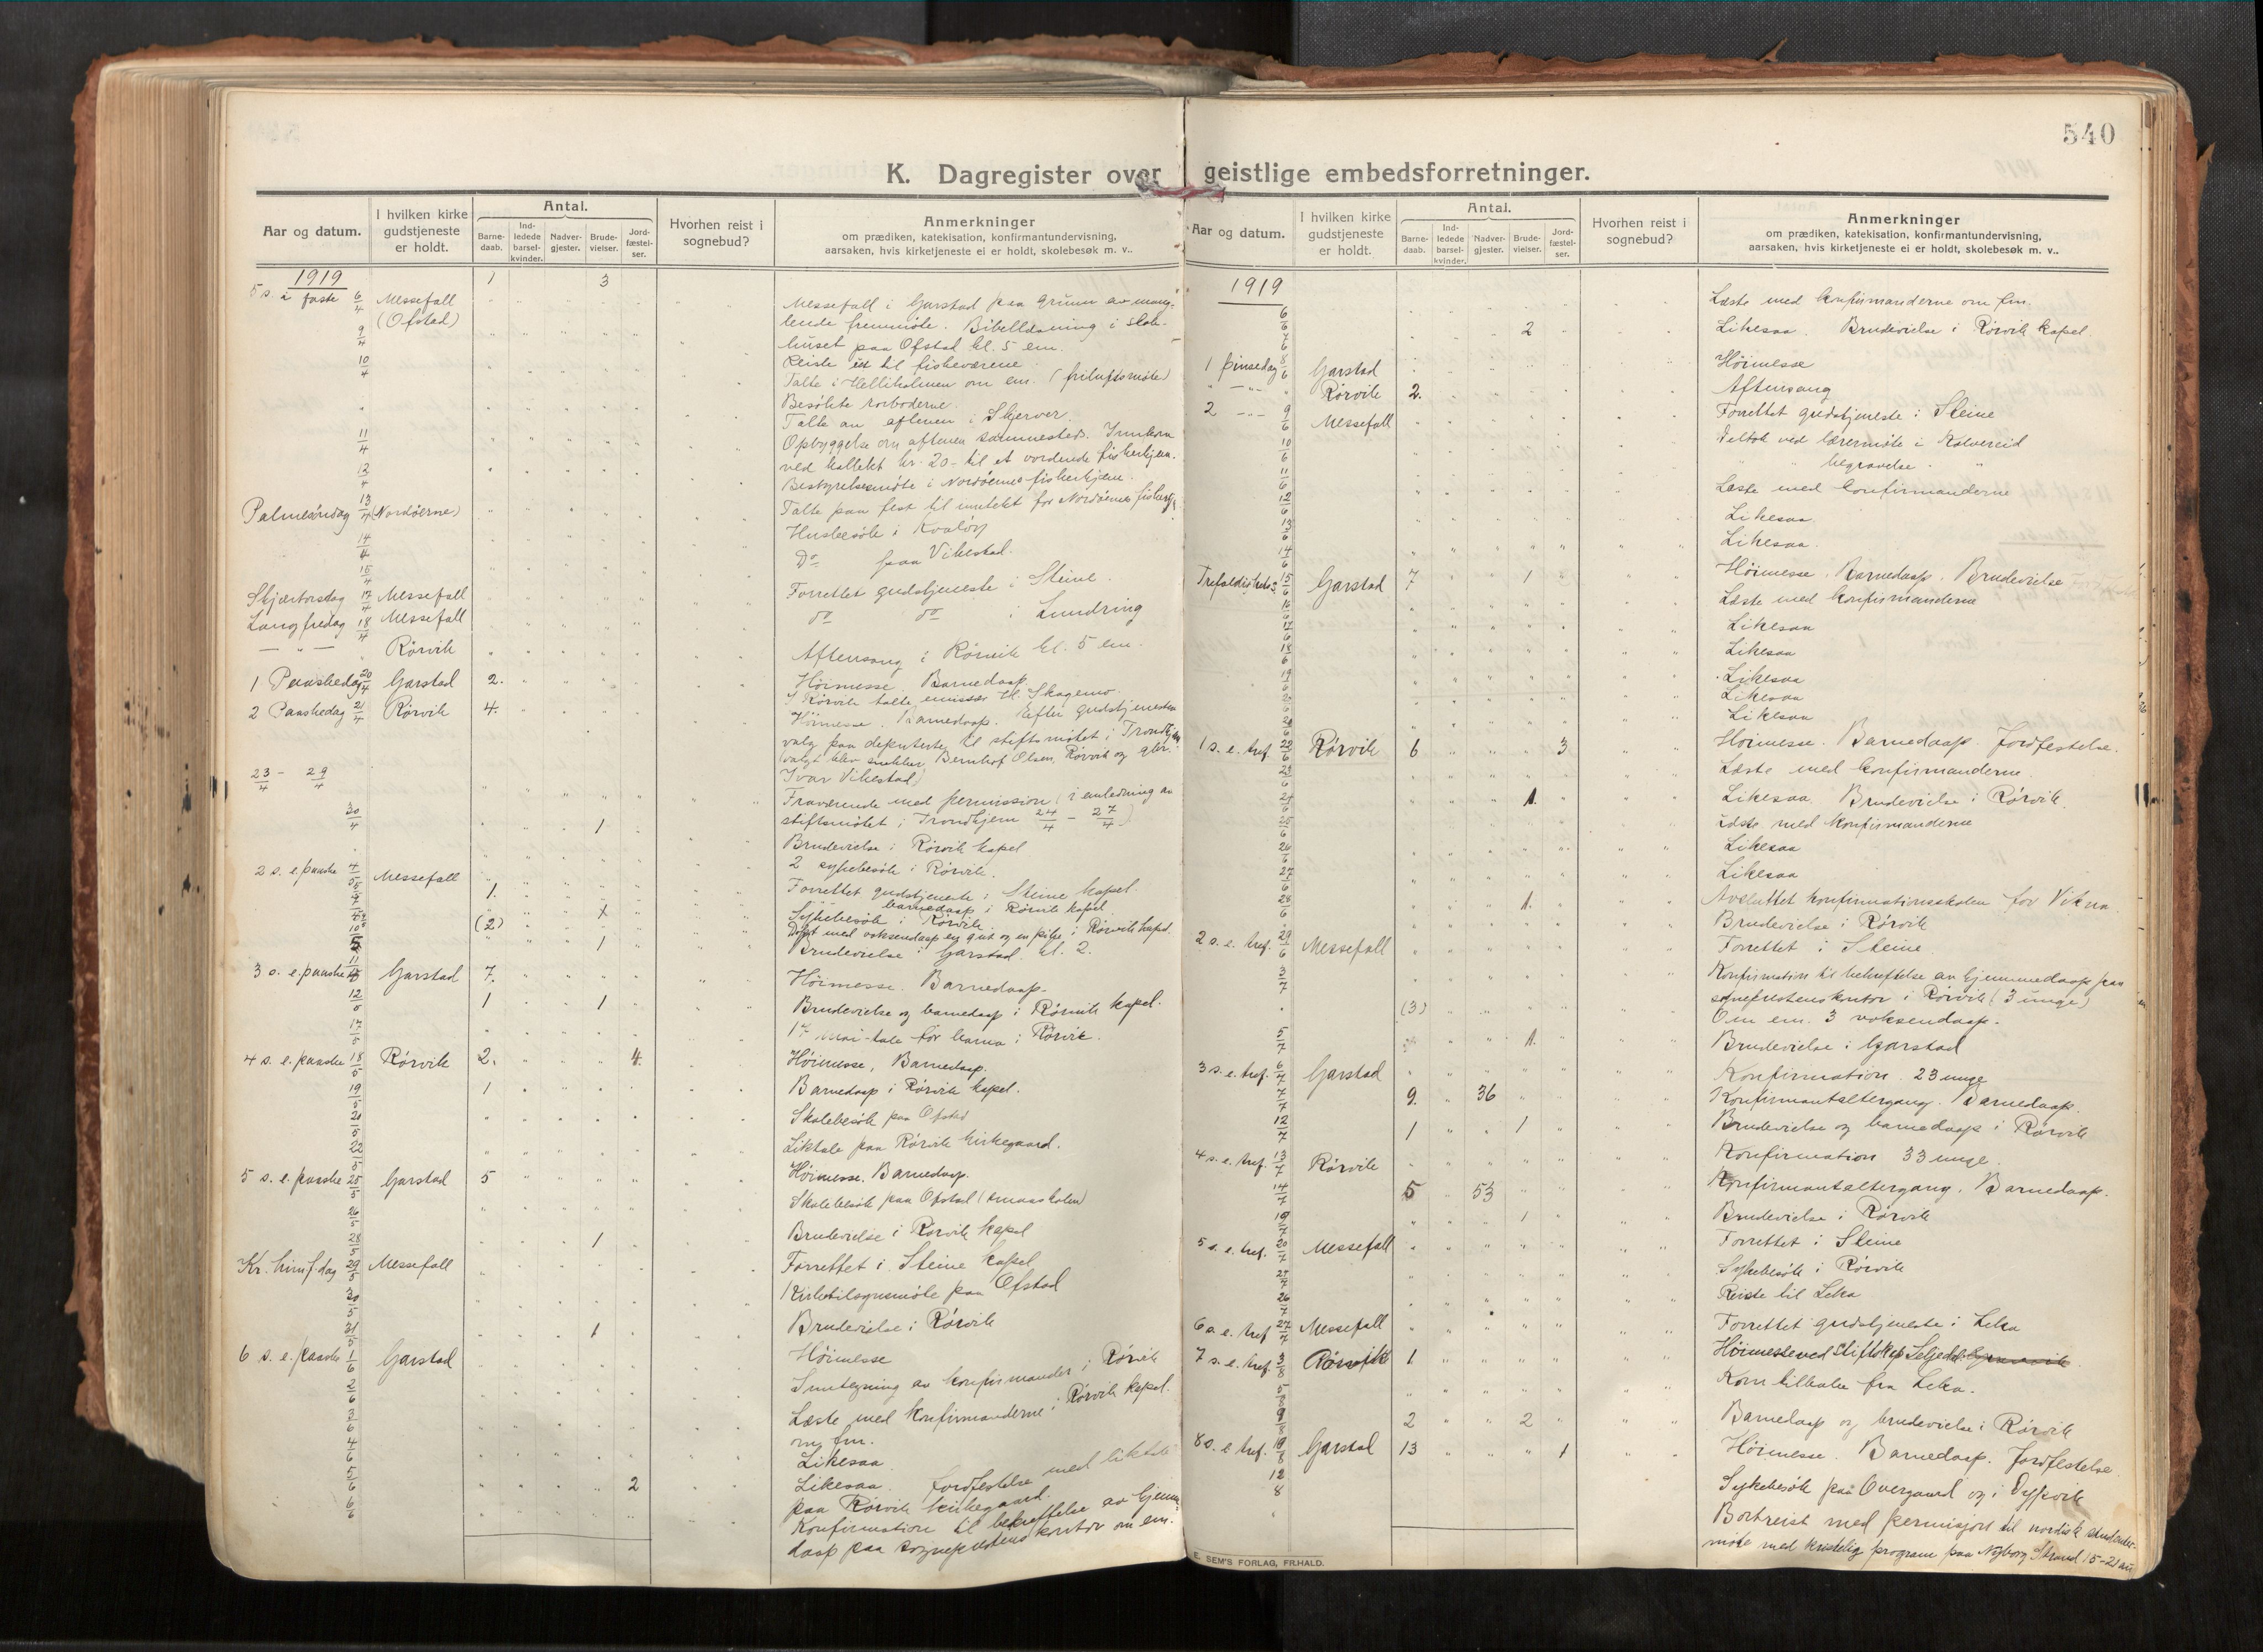 540
K. Dagregister over geistlige embedsforretninger.
Aar og datum.
I hvilken kirke
gudstjeneste
er holdt.
Antal.
Barne-
daab.
Ind-
ledede
barsel-
kvinder.
Nadver-
gjester.
Brude-
vielser.
Jord-
fæstel-
ser.
Hvorhen reist i
sognebud?
Anmerkninger
om prædiken, katekisation, konfirmantundervisning,
aarsaken, hvis kirketjeneste ei er holdt, skolebesøk m. v..
1919 1 3
5 s. i faste 6/4 Messefall Messefall i Garstad paa grunn av mang-
(Ofstad) lende fremmøte. Bibellæsning i skole-
9/4 huset paa Ofstad kl. 5 em.
10/4 Reiste ut til fiskeværene.
Talte i Helliholmen om em. (friluftsmøte)
Besøkte rorboderne.
Talte om aftenen i Skjerver.
11/4 Opbyggelse om aftenen sammesteds. Innkom
ved kollekt kr. 20- til et vordende fiskerhjem.
12/4 Bestyrelsesmøte i Nordøernes fiskerhjem.
Palmesøndag 13/4 (Nordøerne) Talte paa fest til inntekt for Nordøernes fiskerhj.
14/4 Husbesøk i Kvaløy
15/4 Do paa Vikestad.
Skjærtorsdag 17/4 Messefall Forrettet gudstjeneste i Steine.
Langfredag 18/4 Messefall do do i Lundring
— " — Rørvik Aftensang i Rørvik kl. 5 em.
1 Paaskedag 20/4 Garstad 2. Høimesse Barnedaap
I Rørvik talte emissær H. Skagemo
2 Paaskedag 21/4 Rørvik 4. Høimesse. Barnedaap. Efter gudstjenesten
valg paa deputerte til stiftsmøtet i Trondhjem
(valgt blev snekker Bernhof Olsen, Rørvik og
Ivar Vikestad)
23/4 - 29/4 Fraværende med permission (i anledning av
stiftsmøtet i Trondhjem 24/4 - 27/4)
30/4 1 Brudevielse i Rørvik kapel
2 sykebesøk i Rørvik.
2 s. e. paaske 4/5 Messefall Forrettet gudstjeneste i Steine kapel.
1. barnedaap i Rørvik kapel
Sykebesøk i Rørvik
(2) Døpt med voksendaap en gut og en pike i Rørvik kapel.
10/5 1 Brudevielse i Garstad kl. 2.
3 s. e. paaske 11/5 Garstad 7. Høimesse. Barnedaap.
12/5 1 1 Brudevielse og barnedaap i Rørvik kapel.
17/5 17 mai-tale for barna i Rørvik.
4 s. e. paaske 18/5 Rørvik 2. 4. Høimesse, Barnedaap.
19/5 1 Barnedaap i Rørvik kapel.
20/5 Skolebesøk paa Ofstad
22/5 Liktale paa Rørvik kirkegaard.
5 s. e. paaske 25/5 Garstad 5 Høimesse. Barnedaap.
26/5 Skolebesøk paa Ofstad (smaaskolen)
28/5 1 Brudevielse i Rørvik kapel
Kr. himf. dag 29/5 Messefall Forrettet i Steine kapel
30/5 Kirketilsynsmøte paa Ofstad
31/5 1 Brudevielse i Rørvik
6 s. e. paaske 1/6 Garstad Høimesse
2/6 Inntegning av konfirmander i Rørvik
3/6 Læste med konfirmanderne i Rørvik kapel.
om fm.
4/6 Likesaa
5/6 2 Likesaa. Jordfestelse med liktale
paa Rørvik kirkegaard.
6/6 Konfirmation til bekræftelse av hjemme-
daap paa sogneprestens kontor om em.
Aar og datum.
I hvilken kirke
gudstjeneste
er holdt.
Antal.
Barne-
daab.
Ind-
ledede
barsel-
kvinder.
Nadver-
gjester.
Brude-
vielser.
Jord-
fæstel-
ser.
Hvorhen reist i
sognebud?
Anmerkninger
om prædiken, katekisation, konfirmantundervisning,
aarsaken, hvis kirketjeneste ei er holdt, skolebesøk m. v..
1919
6/6 Læste med konfirmanderne om fm.
7/6 2 Likesaa. Brudevielse i Rørvik kapel
1 pinsedag 8/6 Garstad Høimesse
" — " — Rørvik 2. Aftensang
2 — " — 9/6 Messefall Forrettet gudstjeneste i Steine
10/6 Deltok ved lærermøte i Kolvereid
11/6 " " begravelse "
12/6 Læste med konfirmanderne
13/6 Likesaa
14/6 Likesaa.
Trefoldighets. 15/6 Garstad 7 1 Høimesse. Barnedaap. Brudevielse
16/6 Læste med konfirmanderne
17/6 Likesaa
18/6 Likesaa
19/6 Likesaa
20/6 Likesaa
Likesaa
1 s. e. tref. 22/6 Rørvik 6 3 Høimesse. Barnedaap. Jordfestelse.
23/6 Læste med konfirmanderne.
24/6 1. Likesaa. Brudevielse i Rørvik.
25/6 Læste med konfirmanderne
26/6 Likesaa
27/6 Likesaa
28/6 1. Avsluttet konfirmationsskolen for Vikna.
Brudevielse i Rørvik
2 s. e. tref. 29/6 Messefall Forrettet i Steine
3/7 Konfirmation til bekræftelse av hjemmedaap paa
sogneprestens kontor i Rørvik (3 unge)
(3) Om em. 3 voksendaap.
5/7 1. Brudevielse i Garstad
3 s. e. tref. 6/7 Garstad Konfirmation. 23 unge
7/7 9. 36 Konfirmantaltergang. Barnedaap.
12/7 1 1 Brudevielse og barnedaap i Rørvik
4 s. e. tref. 13/7 Rørvik Konfirmation 33 unge.
14/7 5 53 Konfirmantaltergang. Barnedaap.
19/7 1 Brudevielse i Rørvik
5 s. e. tref. 20/7 Messefall Forrettet i Steine
Sykebesøk i Rørvik
26/7 Reiste til Leka
6 s. e. tref 27/7 Messefall Forrettet gudstjeneste i Leka
7 s. e. tref. 3/8 Rørvik 1 Høimesse ved Stiftskap Seljedal
5/8 Kom tilbake fra Leka.
9/8 2 2 Barnedaap og brudevielse i Rørvik
8 s. e. tref. 10/8 Garstad 13 1 Høimesse. Barnedaap. Jordfestelse.
12/8 Sykebesøk paa Overgaard og i Dypvik
Bortreist med permisjon til nordisk student-
møte med kristelig program paa Nyborg Strand 15-21 au
E. SEM'S FORLAG, FR.HALD.